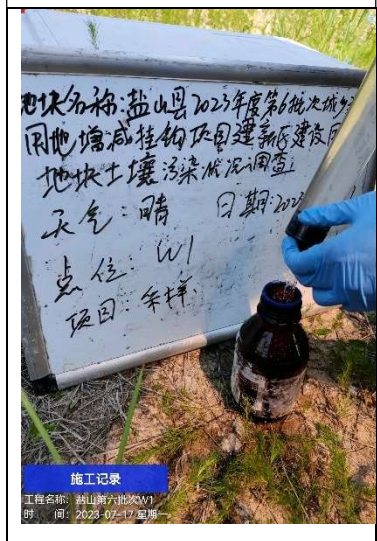 地块名称:盐山县2023年度第6批次城乡
用地增减挂钩项目建新区建设用
地块土壤污染状况调查
天气:晴 日期:2023
点位:W1
项目:采样
施工记录
工程名称: 盐山第六批次W1
时 间: 2023-07-17 星期一